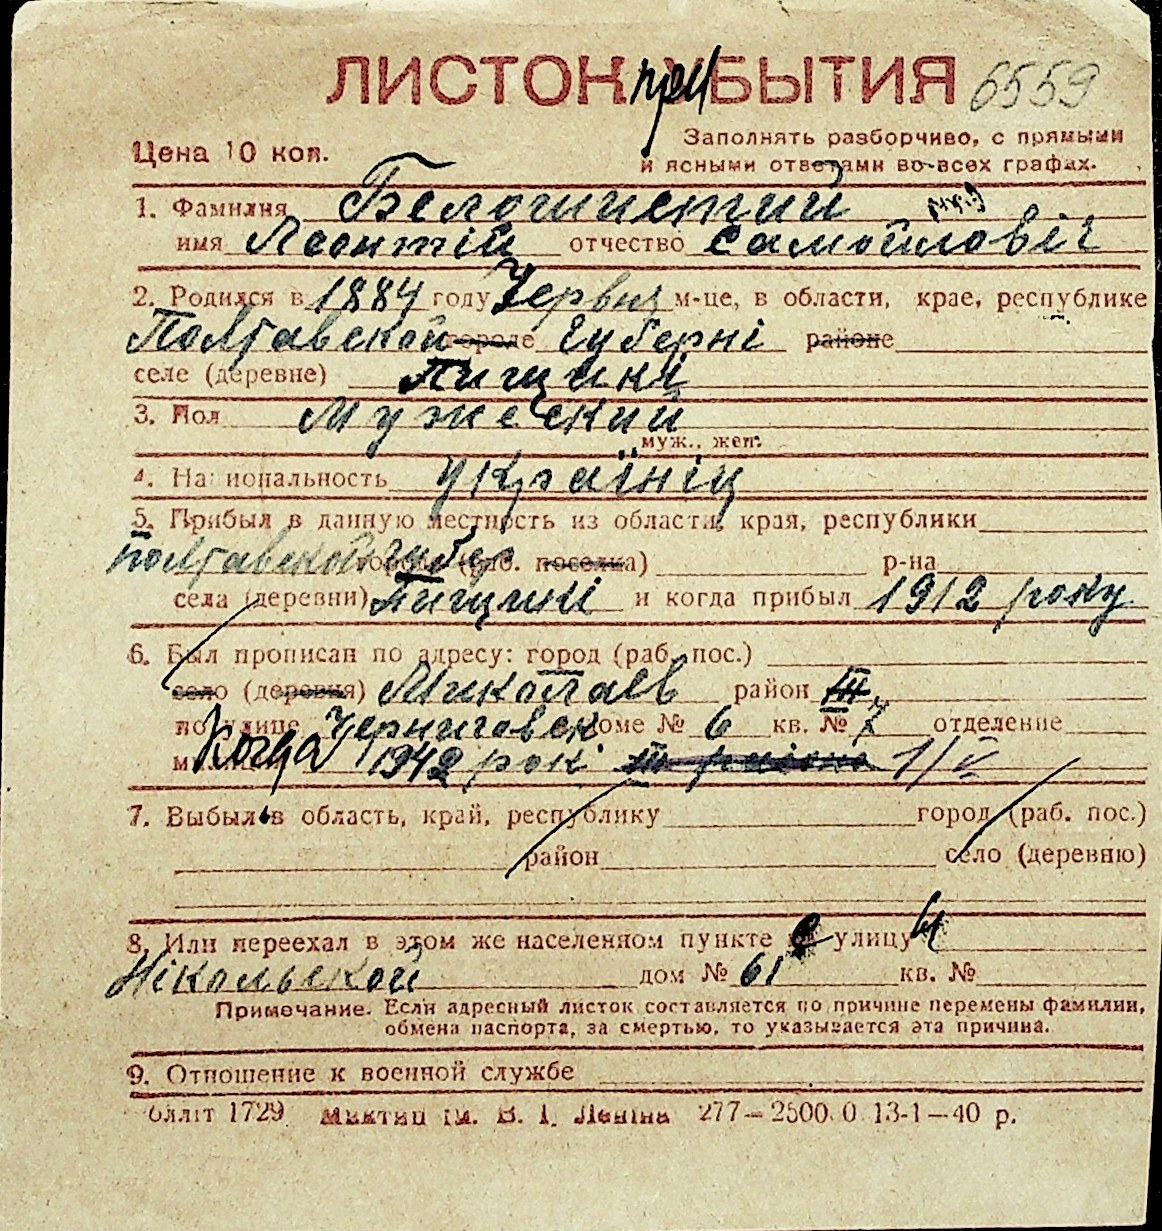 ЛИСТОК при УБЫТИЯ 6559
Цена 10 коп. Заполнять разборчиво, с прямыми
и ясными ответами во всех графах.
1. Фамилия Белошистий
имя Леонтій отчество Самойловіч
2. Родился в 1884 году Червня м-це, в области, крае, республике
Полтавской городе Губерні районе
селе (деревне) Пищики
3. Пол Мужеский
муж., жен.
4. Национальность Українец
5. Прибыл в данную местность из области, края, республики
Полтавской губер (раб. поселка) р-на
села (деревни) Пищикі и когда прибыл 1912 року
6. Был прописан по адресу: город (раб. пос.)
село (деревня) Миколаев район III
по улице Черниговск доме № 6 кв. № 7 отделение
Когда 1942 рокі III района 1/V
7. Выбыл в область, край, республику город (раб. пос.)
район село (деревню)
8. Или переехал в этом же населенном пункте с улицы
Нікольской дом № 61 кв. №
Примечание. Если адресный листок составляется по причине перемены фамилии,
обмена паспорта, за смертью, то указывается эта причина.
9. Отношение к военной службе
Облліт 1729 Миктип ім. В. І. Леніна 277—2500.0 13-1—40 р.